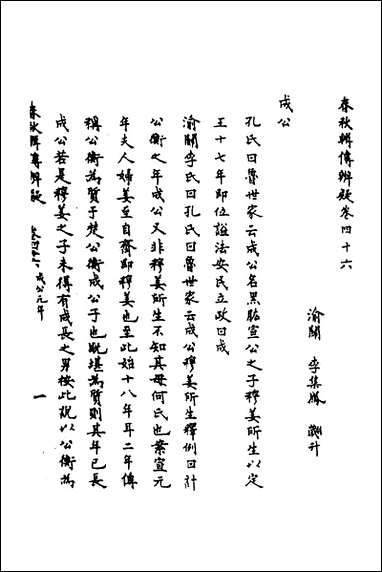 春秋輯傳辨疑卷四十六
渝關 李集鳳 翽升
成公
孔氏曰魯世家云成公名黑肱宣公之子穆姜所生以定
王十七年即位諡法安民立政曰成
渝關李氏曰孔氏曰魯世家云成公穆姜所生釋例曰計
公衡之年成公又非穆姜所生不知其母何氏也案宣元
年夫人婦姜至自齊即穆姜也至此始十八年耳二年傳
稱公衡為質于楚公衡成公子也既堪為質則其年已長
成公若是穆姜之子未得有成長之男按此說以公衡為
春秋輯傳辨疑 卷四十六 成公元年 一